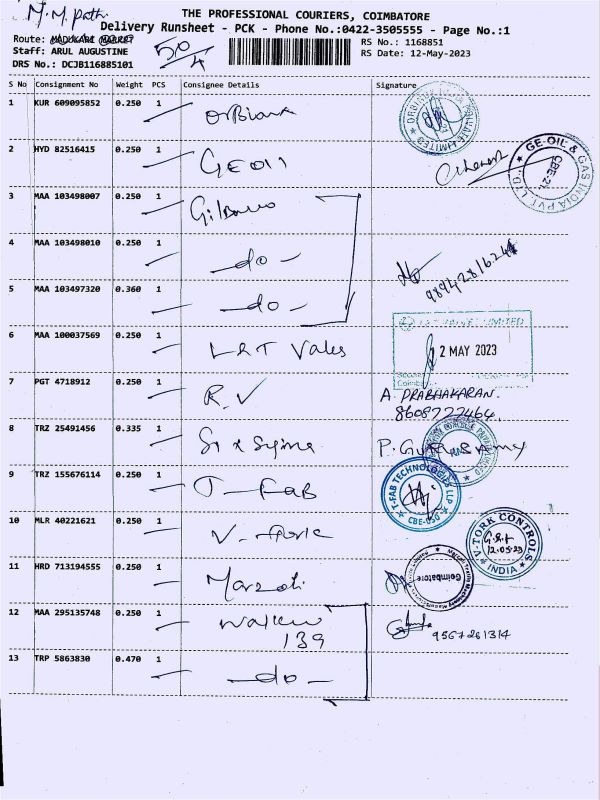 THE PROFESSIONAL COURIERS, COIMBATORE
Delivery Runsheet - PCK - Phone No.:0422-3505555 - Page No.:1
Route: MADUKARI MARKET
Staff: ARUL AUGUSTINE
DRS No.: DCJB116885101
50/4
RS No.: 1168851
RS Date: 12-May-2023
S No Consignment No Weight PCS Consignee Details Signature
1 KUR 609095852 0.250 1 Orbian
2 HYD 82516415 0.250 1 GEOil
GE OIL & GAS INDIA PVT. LTD. CBE-21
3 MAA 103498007 0.250 1
4 MAA 103498010 0.250 1 -do-
5 MAA 103497320 0.360 1 -do-
6 MAA 100037569 0.250 1 L&T Valves
12 MAY 2023
7 PGT 4718912 0.250 1 R.V
A. PRABHAKARAN.
8608722464
8 TRZ 25491456 0.335 1 Six Sigma
9 TRZ 155676114 0.250 1 T-FAB
T-FAB TECHNOLOGIES LLP CBE-050
10 MLR 40221621 0.250 1 V-Tork
V-TORK CONTROLS INDIA
12.05.23
11 HRD 713194555 0.250 1 Marzoli
Marzoli Textile Machinery Coimbatore
12 MAA 295135748 0.250 1 Walker
139
9567261314
13 TRP 5863830 0.470 1 -do-